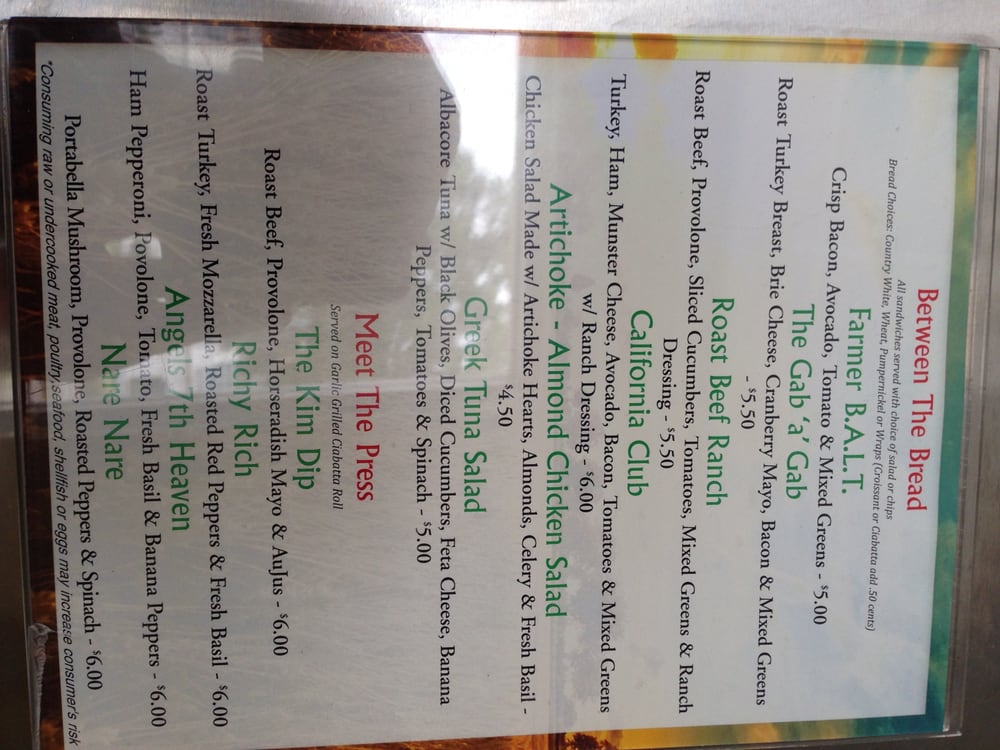 Between The Bread
All sandwiches served with choice of salad or chips
Bread Choices: Country White, Wheat, Pumpernickel or Wraps (Croissant or Ciabatta add .50 cents)
Farmer B.A.L.T.
Crisp Bacon, Avocado, Tomato & Mixed Greens - $5.00
The Gab 'a' Gab
Roast Turkey Breast, Brie Cheese, Cranberry Mayo, Bacon & Mixed Greens
- $5.50
Roast Beef Ranch
Roast Beef, Provolone, Sliced Cucumbers, Tomatoes, Mixed Greens & Ranch
Dressing - $5.50
California Club
Turkey, Ham, Munster Cheese, Avocado, Bacon, Tomatoes & Mixed Greens
w/ Ranch Dressing - $6.00
Artichoke - Almond Chicken Salad
Chicken Salad Made w/ Artichoke Hearts, Almonds, Celery & Fresh Basil -
$4.50
Greek Tuna Salad
Albacore Tuna w/ Black Olives, Diced Cucumbers, Feta Cheese, Banana
Peppers, Tomatoes & Spinach - $5.00
Meet The Press
Served on Garlic Grilled Ciabatta Roll
The Kim Dip
Roast Beef, Provolone, Horseradish Mayo & AuJus - $6.00
Richy Rich
Roast Turkey, Fresh Mozzarella, Roasted Red Peppers & Fresh Basil - $6.00
Angels 7th Heaven
Ham Pepperoni, Povolone, Tomato, Fresh Basil & Banana Peppers - $6.00
Nare Nare
Portabella Mushroom, Provolone, Roasted Peppers & Spinach - $6.00
*Consuming raw or undercooked meat, poultry,seafood, shellfish or eggs may increase consumer's risk